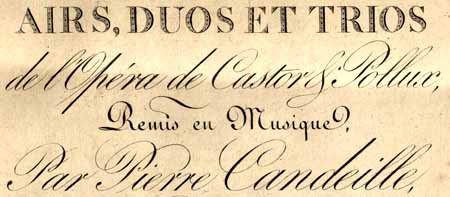 AIRS, DUOS ET TRIOS
de l'Opéra de Castor & Pollux,
Remis en Musique,
Par Pierre Candeille,